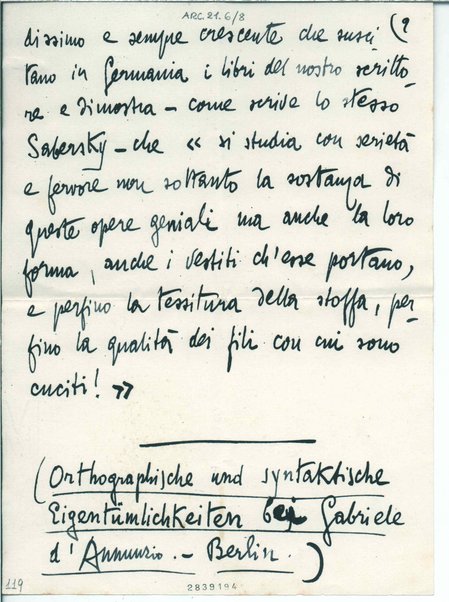 ARC.21.6/8
(9
dissimo e sempre crescente che susci
tano in Germania i libri del nostro scritto-
re e dimostra – come scrive lo stesso
Sabersky – che « si studia con serietà
e fervore non soltanto la sostanza di
queste opere geniali ma anche la loro
forma, anche i vestiti ch'esse portano,
e perfino la tessitura della stoffa, per-
fino la qualità dei fili con cui sono
cuciti! »
(Orthographische und syntaktische
Eigentümlichkeiten bei Gabriele
d'Annunzio. – Berlin.)
119
2839194